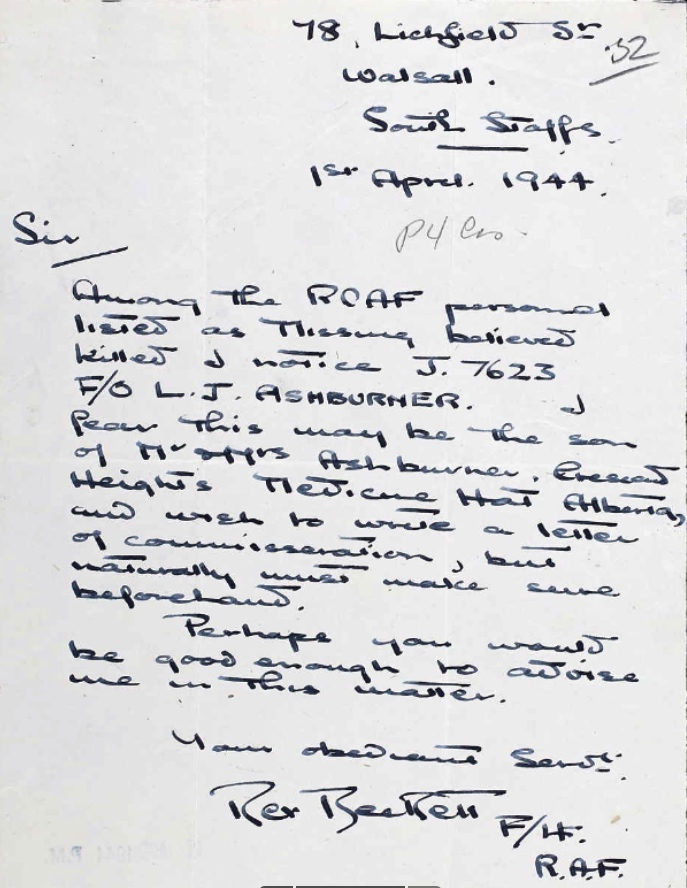 78, Lichfield St
32
Walsall.
South Staffs.
1st April. 1944.
P4 Cas
Sir
Among the RCAF personnel
listed as Missing believed
killed I notice J. 7623
F/O L.J. ASHBURNER. I
fear this may be the son
of Mr & Mrs Ashburner, Crescent
Heights Medicine Hat Alberta,
and wish to write a letter
of commisseration, but
naturally must make sure
beforehand.
Perhaps you would
be good enough to advise
me in this matter.
Your obedient Servt.
Rex Beckett
F/Lt.
R.A.F.
1944 P.M.